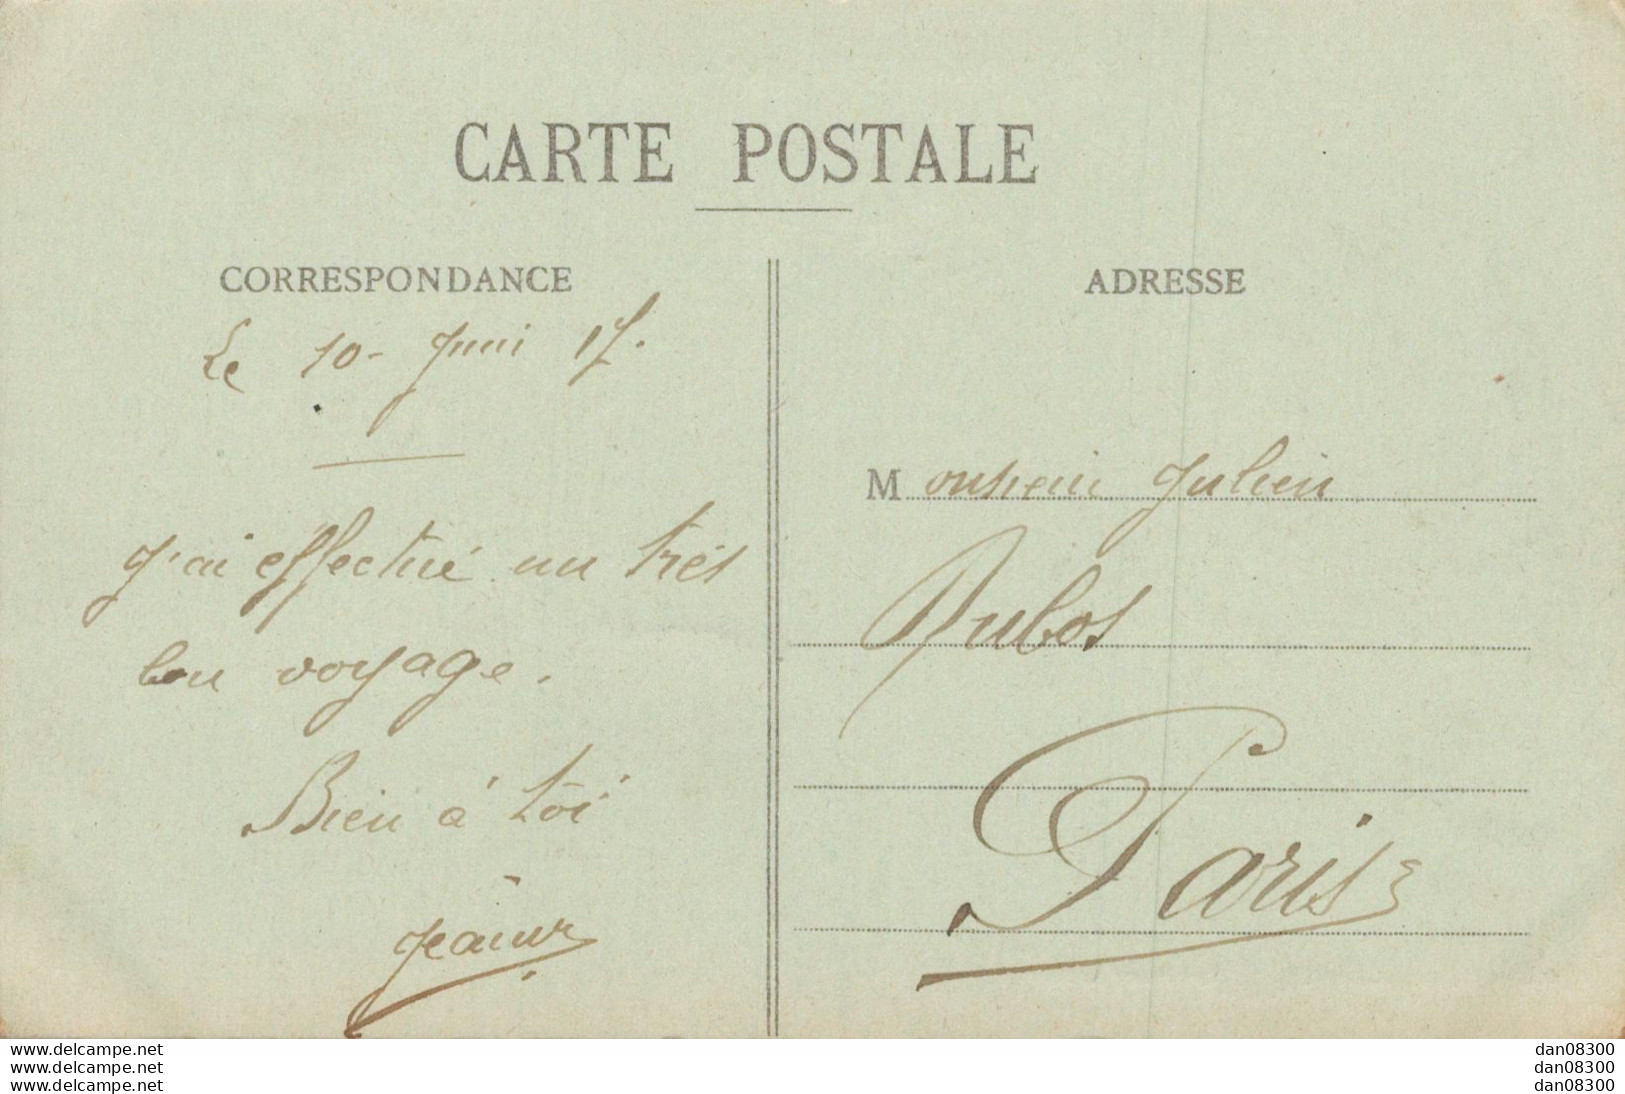 CARTE POSTALE
CORRESPONDANCE
Le 10 - Juin 17.
J'ai effectué un très
bon voyage.
Bien à toi
ADRESSE
Monsieur Julien
Dubos
Paris
www.delcampe.net
www.delcampe.net
www.delcampe.net
dan08300
dan08300
dan08300